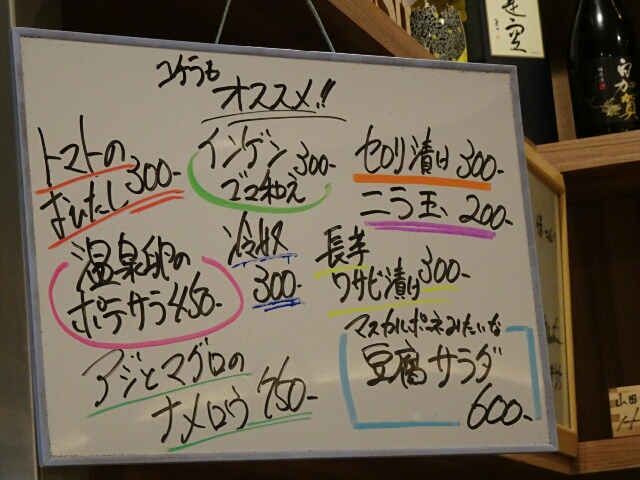 コチラも
オススメ!!
トマトの
おひたし 300-
インゲン
ゴマ和え 300-
セロリ漬け 300-
ニラ玉 200-
温泉卵の
ポテサラ 450-
冷奴
300-
長芋
ワサビ漬け 300-
アジとマグロの
ナメロウ 750-
マスカルポーネみたいな
豆腐サラダ
600-
山田